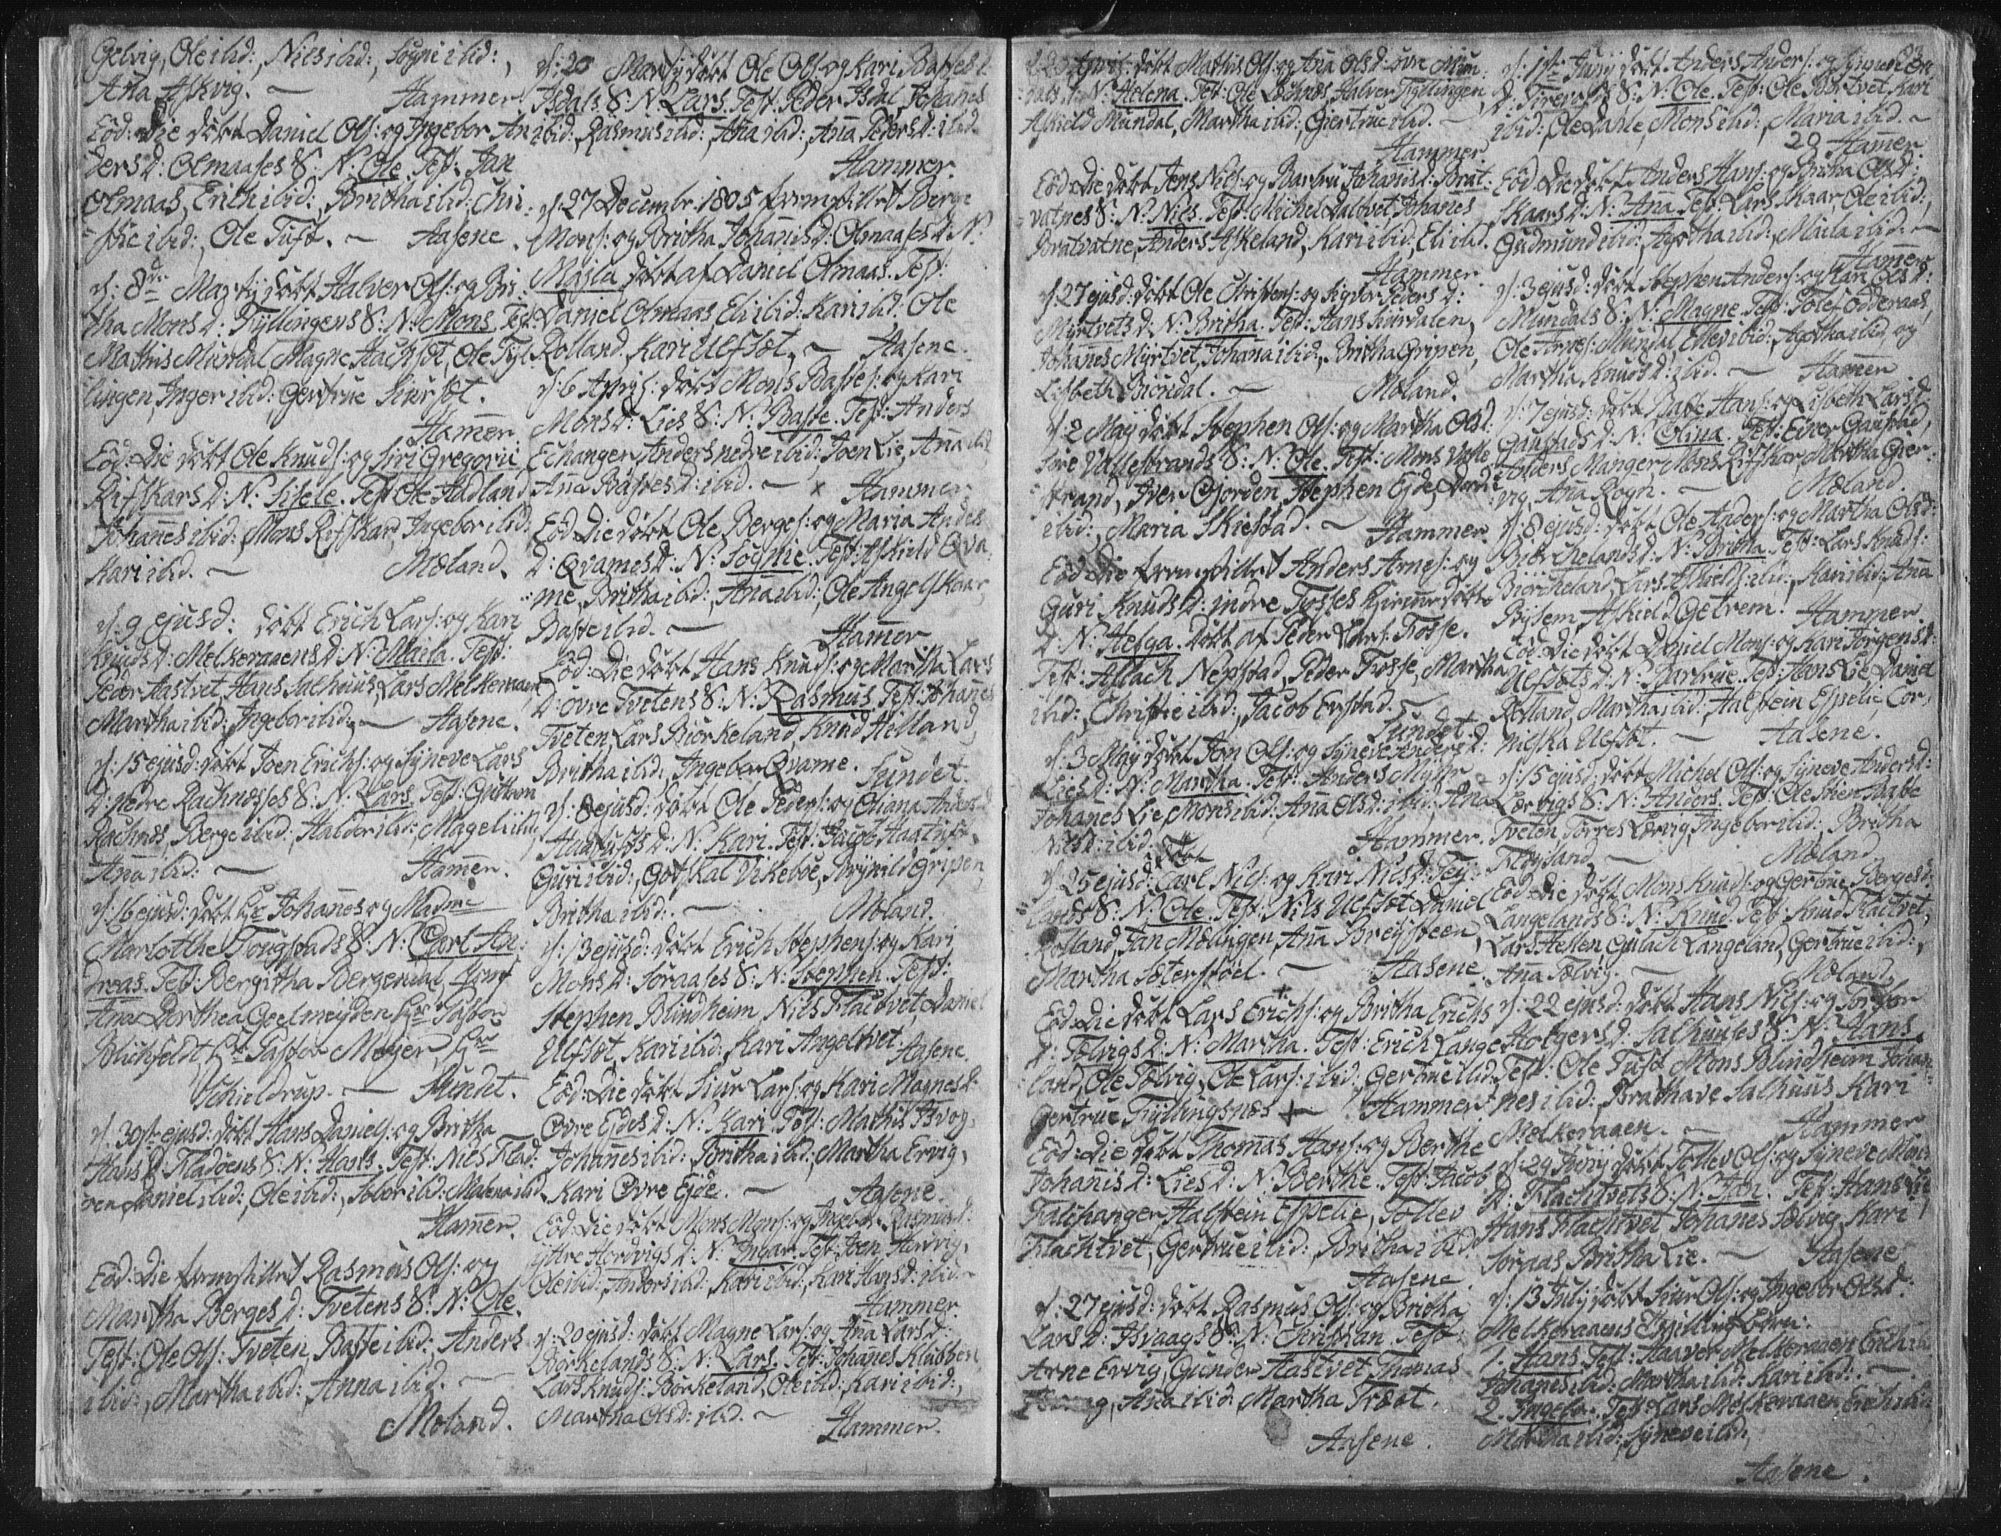 Gelvig, Ole ibid:, Nils ibid:, Sogni ibid:,
Ana Askvig. — Hammer.
Eod: Die døbt Daniel Ols: og Ingebor An
dersd: Olmaases S: N: Ole. Test: Jan
Olmaas, Erich ibid:, Britha ibid: Chri-
stie ibid:, Ole Tuft. — Aasene.
d: 8de Martij døbt Halver Ols: og Bri-
tha Monsd: Tyllingens S: N: Mons. Test:
Mathis Mundal Magne Ole Tyl
lingen, Inger ibid: Gertrue
Hamer.
Eod: Die døbt Ole Knuds: og Siri Gregorii
Rifskars D: N: Sisele. Test: Ole Hadland
Johanes ibid:, Mons Rifskar, Ingebor ibid:
Kari ibid. — Moland.
d: 9 ejusd: døbt Erich Lars: og Kari
Knudsd: Melkeraaens D: N: Maila. Test:
Peder Hastvet Hans Salhuus, Lars Melkeraaen
Martha ibid:, Ingebor ibid:, — Aasene.
d: 15 ejusd: døbt Joen Erichs: og Synneve Lars
D: nedre Rachnesses S: N: Lars. Test: Guttorm
Rachnes, Berge ibid:, Haldor ibid:, Mageli ibid:
Ana ibid: — Hamer.
d: 16 ejusd: døbt Hr Johanes og Madme
Tongstads S: N: Carl An-
dreas. Test: Bergitha Bergendal, Jomf
Ana Dorthea Geelmeyden Hr Pastor
Blichfeldt Hr Pastor Meyer, Hr
Schieldrup. — Sundet.
d: 30te ejusd: døbt Hans Daniels: og Britha
Hansd: Fladøens S: N: Hans. Test: Niels Flad-
øen, Daniel ibid:, Ole ibid:, ibid: Malena ibid
Hamer.
Eod: Die fremstillet Rasmus Ols: og
Martha Bergesd: Tvetens S: N: Ole.
Test: Ole Ols: Tveten, Basse ibid: Anders
ibid:, Martha ibid:, Anna ibid. —
Moland.
d: 20 Martij døbt Ole Ols: og Kari Basses D:
Isdals S: N: Lars. Test: Peder Isdal, Johanes
ibid: Rasmus ibid:, Ana ibid:, Ana Pedersd: ibid
Hammer.
d: 27 Decembr 1805 fremstillet Berge
Mons: og Britha Johanisd: Olmaases D: N:
Majla døbt af Daniel Olmaas. Test:
Daniel Olmaas Eli ibid: Kari ibid: Ole
Rolland, Kari Ulfstøt. — Aasene.
d: 6 Aprijs: døbt Mons Basses: og Kari
Monsd: Lies S: N: Basse. Test: Anders
Echanger, Anders nedre ibid: Joen Lie, Ana ibid
Ana Bassesd: ibid. — Hammer.
Eod: Die døbt Ole Berges: og Maria Anders
D: Qvames D: N: Sogne. Test: Askield Qva-
me, Britha ibid:, Ana ibid:, Ole Angelskaar,
Basse ibid. — Hamer
Eod: Die døbt Hans Knuds: og Martha Lars
D: øvre Tvetens S: N: Rasmus. Test: Johanes
Tveten, Lars Biørkeland, Knud Helland,
Britha ibid:, Ingebor Qvame. Sundet.
d: 8 ejusd: døbt Ole Peders: og Oliana Anders D:
D: N: Kari. Test: Jacob
Guri ibid:, Gotskal Vikebøe, Brynild Gripen,
Britha ibid:. — Moland.
d: 13 ejusd: døbt Erich Stephens: og Kari
Monsd: Soraases S: N: Stephen. Test:
Stephen Blindheim Niels Flactvet, Daniel
Ulfstøt, Kari ibid: Kari Angeltvet. Aasene.
Eod: Die døbt Siur Lars: og Kari Magnesd:
Øvre Ejdes D: N: Kari. Test: Mathis
Johanes ibid: Britha ibid:, Martha Ervig,
Kari Øvre Ejde. — Aasene.
Eod: Die døbt Mons Mons: og Ingebor Rasmusd:
yttre Hordvigs D: N: Ingar. Test: Joen Hordvig,
Ole ibid:, Anders ibid: Kari ibid:, Kari Hansd: ibid. —
Hammer.
d: 20 ejusd: døbt Magne Lars: og Ana Larsd:
Børkelands S: N: Lars. Test: Johanes Klubben,
Lars Knuds: Børkeland, Ole ibid: Kari ibid:,
Martha Olsd: ibid. — Hammer.
døbt Mathis Ols: og Ana Olsd: øvre Mun-
dals D: N: Helena. Test: Ole Halver Tyllingen,
Askield Mundal, Martha ibid: Giertrue ibid. —
Hammer.
Eod: Die døbt Jens Nils: og Bartru Johanisd: Brat-
vatnes S: N: Nils. Test: Michel Dalvet Johanes
Bratvatne, Anders Askeland, Kari ibid, Eli ibid.
Hammer.
d: 27 ejusd: døbt Ole Christens: og Sigvor Pedersd:
Myrtvets D: N: Britha. Test: Hans Lurdalen,
Johanes Myrtvet, Johana ibid:, Britha Gripen,
Lisbeth Biøndal. — Moland.
d: 2 Maij døbt Stephen Ols: og Martha Olsd:
Søre Vallestrands S: N: Ole. Test: Mons Valle
strand, Iver Gjorden, Stephen Ejde,
ibid:, Maria Skiestad. — Hammer.
Eod: Die fremstillet Anders Arnes: og
Guri Knudsd: indre Tosses hjemme døbte
D: N: Helga. døbt af Peder Lars: Tosse.
Test: Aslach Nepstad, Peder Tosse, Martha
ibid:, Christie ibid:, Jacob Erstad. —
Sundet.
d: 3 Maij døbt Jon Ols: og Syneve Andersd:
Lies D: N: Martha. Test: Anders Myhr
Johanes Lie Mons ibid: Ana Olsd: ibid:, Ana
Nilsd: ibid. — Hammer.
d: 25 ejusd: døbt Carl Nils: og Kari Nilsd: Tej-
lands S: N: Ole. Test: Nils Ulfstøt Daniel
Rolland, Jan Mølingen, Ana Breysteen,
Martha Sæterstøel. — Aasene
Eod: Die døbt Lars Erichs: og Britha Erichs
D: Tolvigs D: N: Martha. Test: Erich Lange
land, Ole Tolvig, Ole Lars: ibid:, Gertrue ibid:
Gertrue Tyllingsnæs — Hammer
Eod: Die døbt Thomas Hans: og Berthe
Johanisd: Lies D: N: Berthe. Test: Jacob
Falchanger, Halstein Espelie, Tollev
Flachtvet, Gertrue ibid:, Britha ibid.
Aasene.
d: 27 ejusd: døbt Rasmus Ols: og Britha
Larsd: Isvaags S: N: Christian. Test:
Arne Ervig, Gunder Hastvet Thomas
Ana ibid: Martha Træet.
Aasene.
23
d: 1ste Junij døbt Anders Anders: og Synneve Ole
D: S: N: Ole. Test: Ole Tvet Kari
ibid:, Ole Dahle, Mons ibid:, Maria ibid. —
29 Hamer.
Eod: Die døbt Anders Hans: og Britha Olsd:
Skaars D: N: Ana. Test: Lars Skaar, Ole ibid:,
Gudmund ibid:, Agatha ibid:, Maila ibid: —
Hamer
d: 3 ejusd: døbt Stephen Anders: og Kari Olsd:
Mundals S: N: Magne. Test: Tolef Odderaas,
Ole Arnes: Mundal, Ellev ibid:, Agatha ibid, og
Martha Knudsd: ibid. — Hamer
d: 7 ejusd: døbt Babe Hans: og Lisbeth Larsd:
Gaustads D: N: Olina. Test: Ever Gaustad,
Anders Manger, Mons Rifskar Martha Gier-
vig, Ana Rogn. — Moland.
d: 8 ejusd: døbt Ole Anders: og Martha Olsd:
Biørchelands D: N: Britha. Test: Lars Knuds:
Biørcheland, Lars Askields: ibid:, Kari ibid: Ana
Rysem, Askield Getrem. Hammer.
Eod: Die døbt Daniel Mons: og Kari Jørgensd:
Ulfstøts D: N: Bartrue. Test: Hans Lie Daniel
Rolland, Martha ibid:, Halstein Espelie, Cor-
nilska Ulfstøt. — Aasene.
d: 15 ejusd: døbt Michel Ols: og Syneve Andersd:
Lervigs S: N: Anders. Test: Ole Stephens: Babe
Tveten Torres Lervig, Ingebor ibid:, Britha
Fløysand — Moland.
Eod: Die døbt Mons Knuds: og Gertrue Bergesd:
Langelands S: N: Knud. Test: Knud Flattvet,
Lars Hellen Gulach Langeland, Gertrue ibid:,
Ana Tælvig. — Moland.
d: 22 ejusd: døbt Hans Nils: og Torbor
Holgersd: Salhuuses S: N: Hans.
Test: Ole Tuft Mons Blindheim Johan-
nes ibid:, Brathave Salhuus Kari
Melkeraaen. — Hammer
d: 29 Junij døbt Tollev Ols: og Syneve Mons
D: Flachtvets S: N: Jan. Test: Hans Lie,
Hans Flachtvet Johanes Tølvig, Kari
Soraas Britha Lie. — Aasene
d: 13 Julij døbt Siur Ols: og Ingebor Olsd:
Melkeraaens Tvilling Børn:
1. Hans. Test: Haaver Melkeraaen Erich ibid
Johanes ibid: Martha ibid: Kari ibid:. —
2. Ingebor. Test: Lars Melkeraaen Erich ibid
Martha ibid: Syneve ibid,
Aasene.